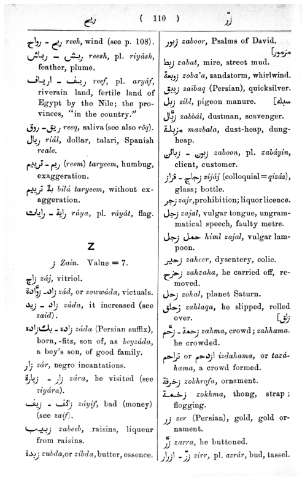 ريح ( 110 ) زر
ريح - رياح reeh, wind (see p. 108).
ريش - رياش reesh, pl. riyâsh,
feather, plume.
ريف - ارياف reef, pl. aryâf,
riverain land, fertile land of
Egypt by the Nile; the pro-
vinces, "in the country."
ريق - روق reeq, saliva (see also rôq).
ريال riâl, dollar, talari, Spanish
reale.
ريم - تريم (reem) taryeem, humbug,
exaggeration.
بلا تريم bilâ taryeem, without ex-
aggeration.
راية - رايات râya, pl. râyât, flag.
Z
ز Zain. Value = 7.
زاج zâj, vitriol.
زاد - زوادة zâd, or zouwâda, victuals.
زاد - زيد zâda, it increased (see
zaid).
زاده zâda (Persian suffix),
born, -fits, son of, as beyzâda,
a boy's son, of good family.
زار zâr, negro incantations.
زار - زيارة zâra, he visited (see
ziyâra).
زيف zâyif, bad (money)
(see zaif).
زبيب zabeeb, raisins, liqueur
from raisins.
زبدة zubda, or zibda, butter, essence.
زبور zaboor, Psalms of David.
زبط zabat, mire, street mud.
زوبعة zoba'a, sandstorm, whirlwind.
زيبق zaibaq (Persian), quicksilver.
زبل zibl, pigeon manure.
زبال zabbâl, dustman, scavenger.
مزبلة mazbala, dust-heap, dung-
heap.
زبون - زبائن zaboon, pl. zabâyin,
client, customer.
زجاج - قزاز zijâj (colloquial = qizâz),
glass; bottle.
زجر zajr, prohibition; liquor licence.
زجل zajal, vulgar tongue, ungram-
matical speech, faulty metre.
حمل زجل himl zajal, vulgar lam-
poon.
زحير zaheer, dysentery, colic.
زحزح zahzaha, he carried off, re-
moved.
زحل zohal, planet Saturn.
زحلق zahlaqa, he slipped, rolled
over.
زحم - زحمة zahma, crowd; zakhama,
he crowded.
ازدحم or تزاحم izdahama, or tazâ-
hama, a crowd formed.
زخرفة zokhrofa, ornament.
زخمة zokhma, thong, strap;
flogging.
زر zer (Persian), gold, gold or-
nament.
زر zarra, he buttoned.
زر - ازرار zirr, pl. azrâr, bud, tassel.